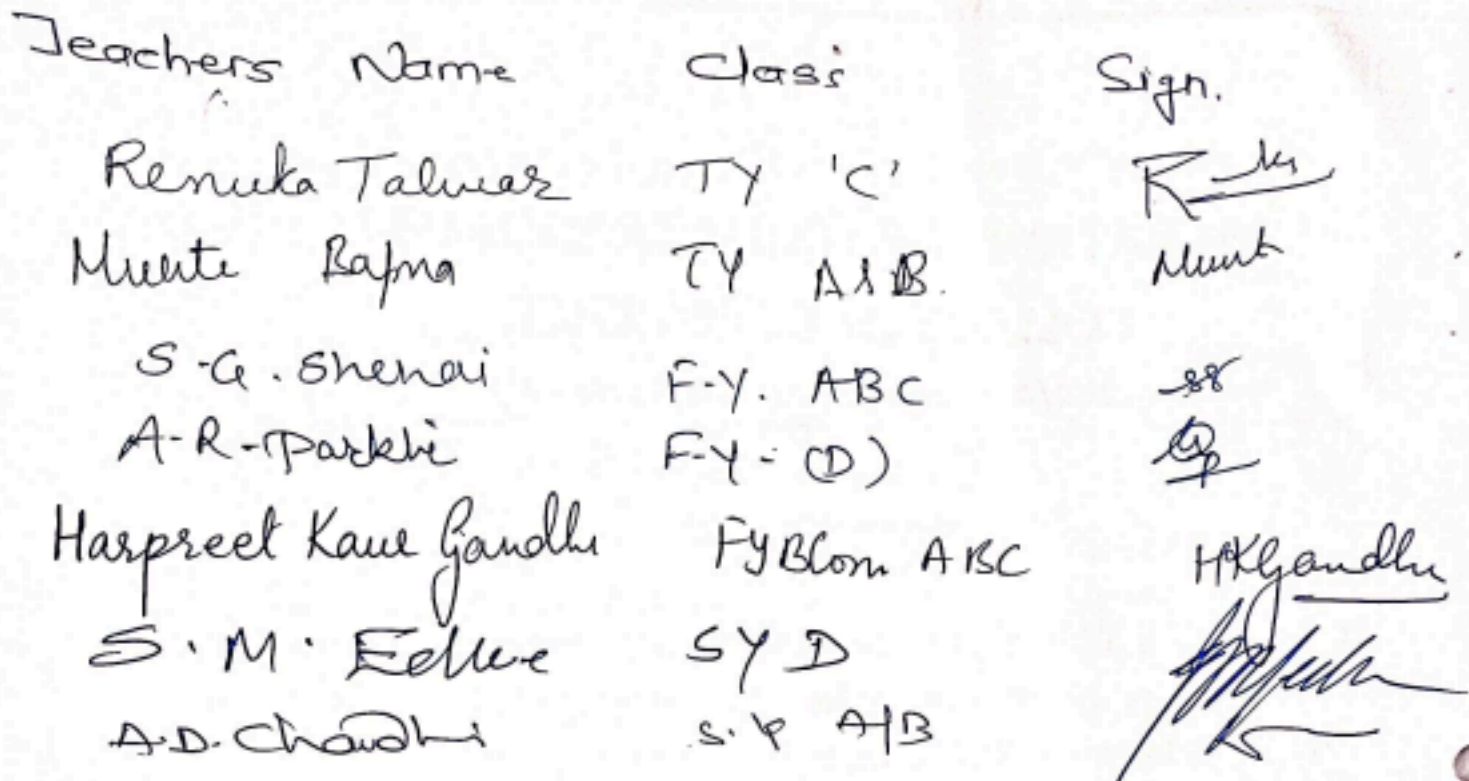 Teachers Name Class Sign.
Renuka Talwar TY 'C'
Bafna TY A & B.
S.G. Shenai F.Y. ABC
A-R-Parkhi F-Y- (D)
Harpreet Kaur Gandhi FyBCom ABC HKGandhi
S. M. SY D
A.D. A/B